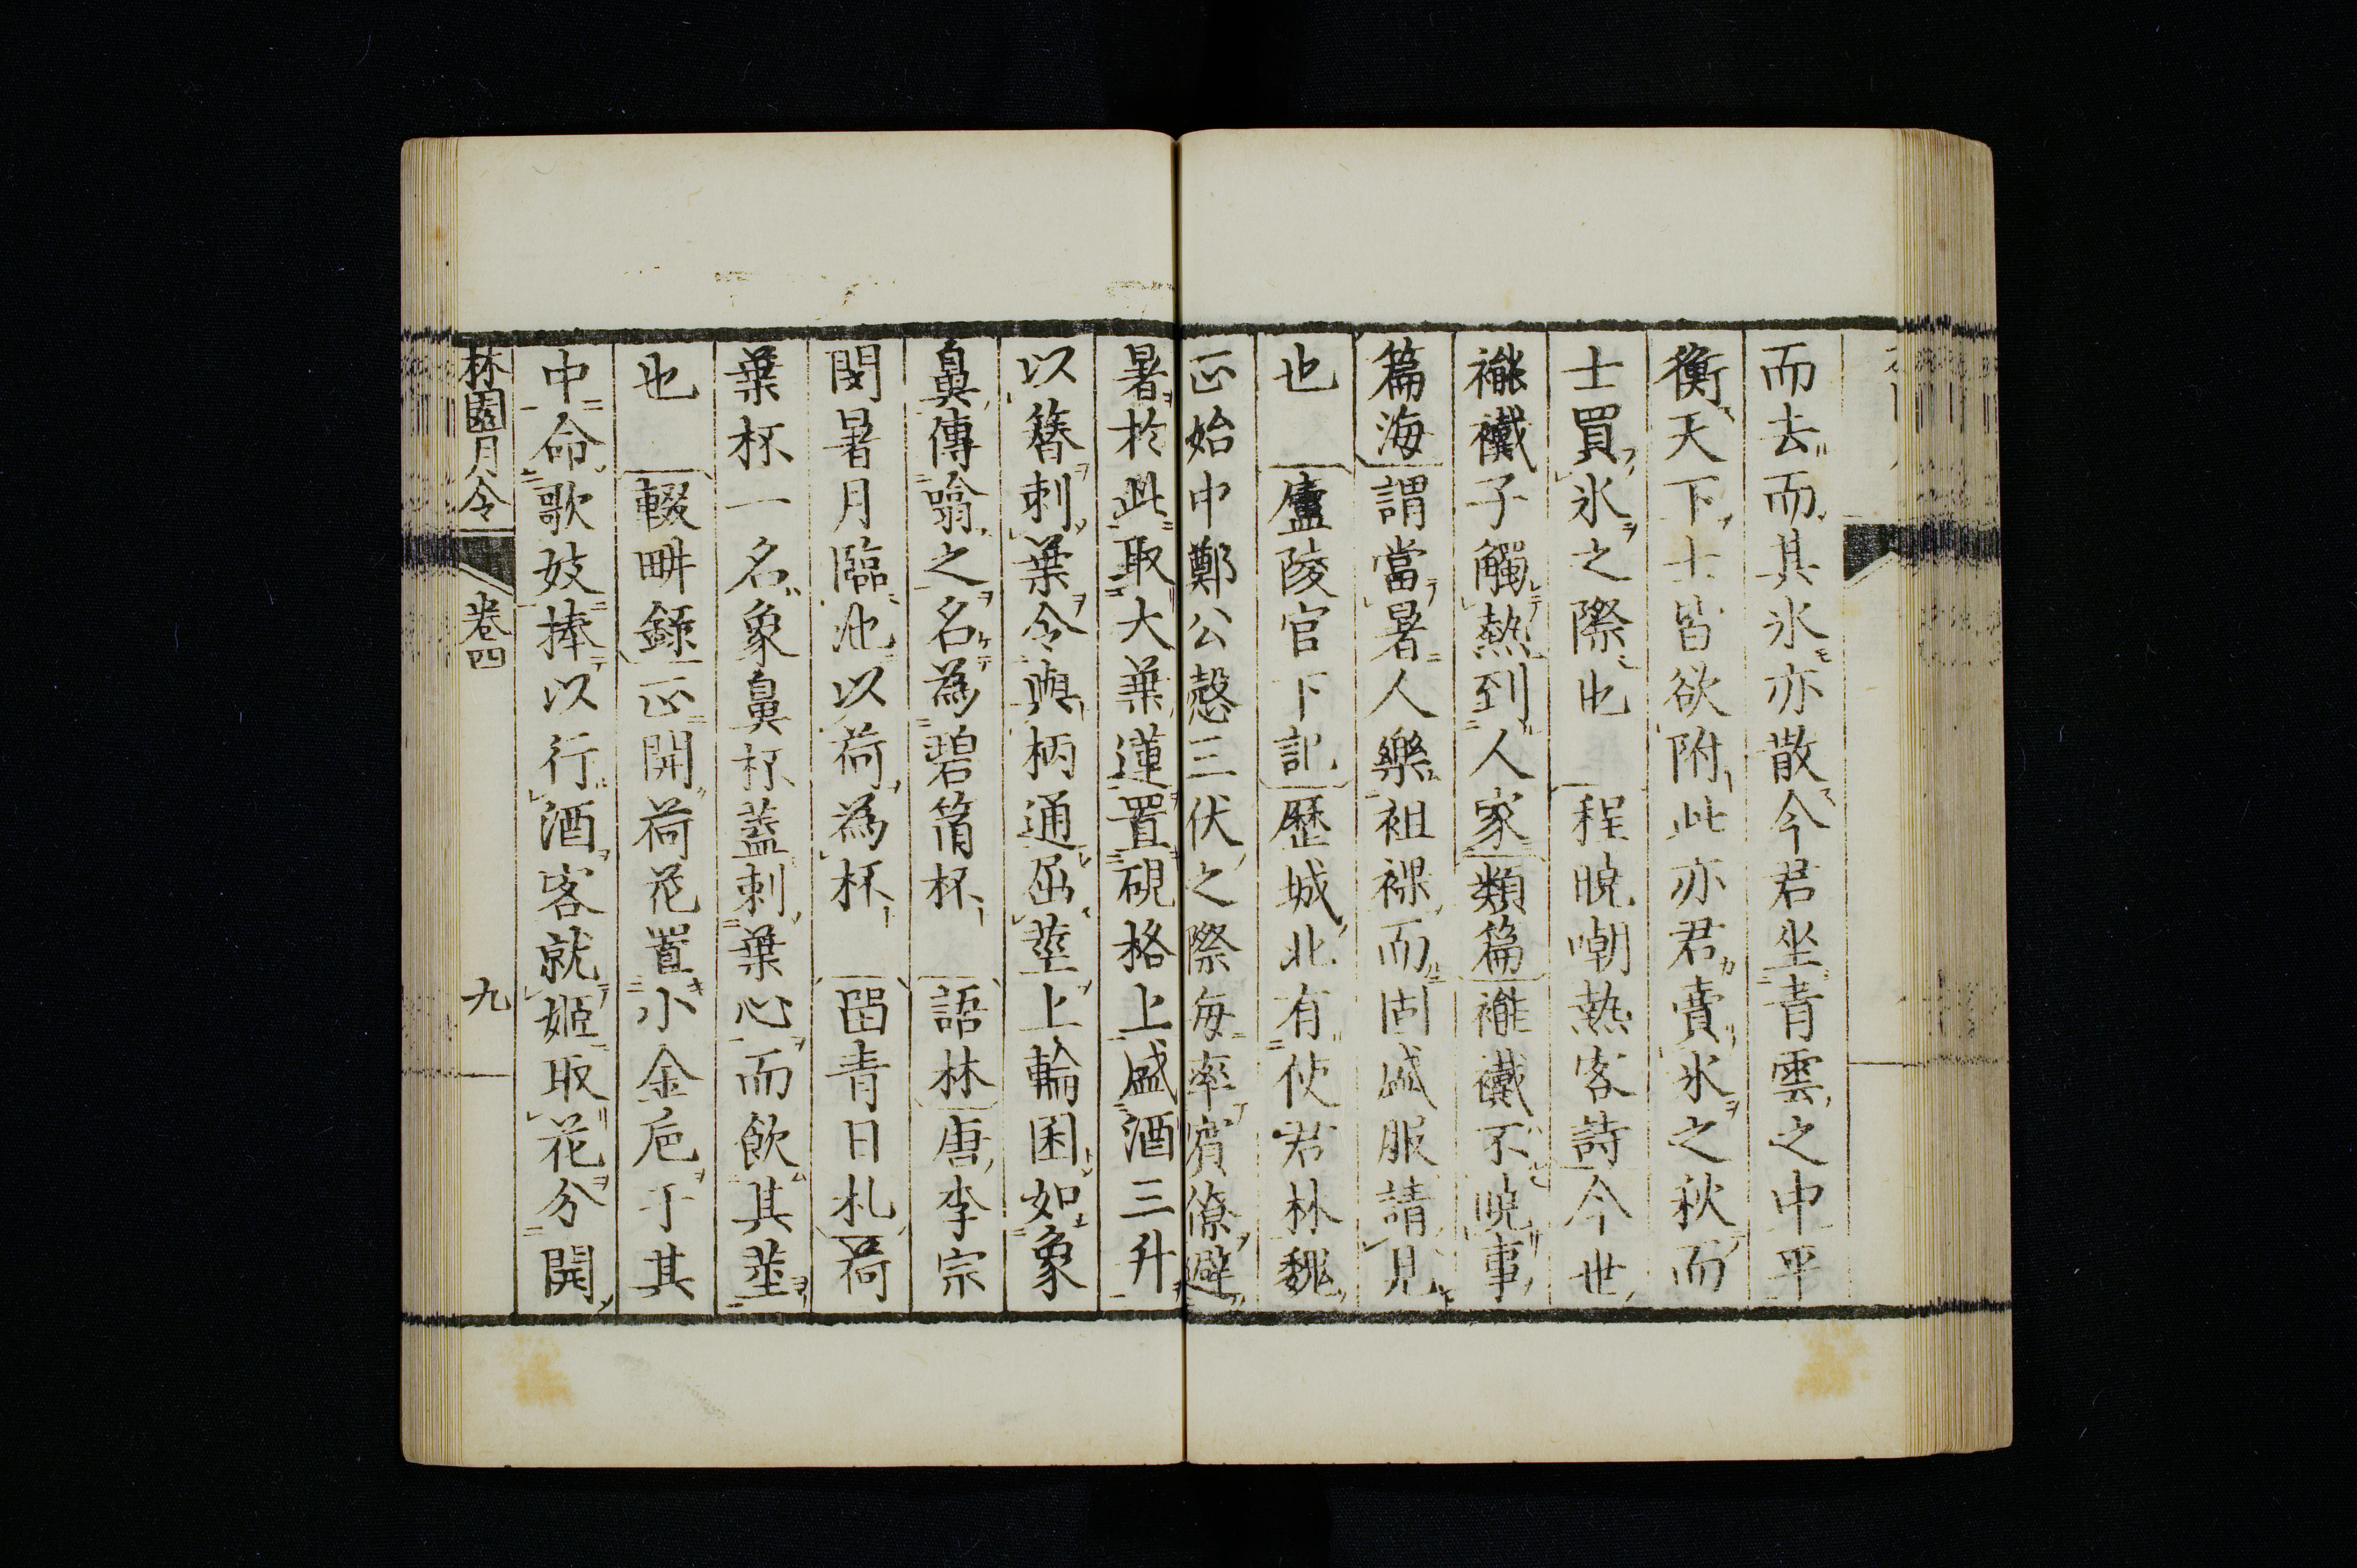 而去而其氷亦散今君坐青雲之中平
衡天下士皆欲附此亦君賣氷之秋而
士買氷之際也　程暁嘲熱客詩今世
襶子觸熱到人家類篇襶不暁事
篇海謂當暑人樂袒裸而固盛服請見
也　廬陵官下記歷城北有使君林魏
正始中鄭公愨三伏之際毎率賓僚避
暑於此取大葉蓮置硯格上盛酒三升
以簪刺葉令與柄通屈莖上輪囷如象
鼻傳噏之名為碧筩杯　語林唐李宗
閔暑月臨池以荷為杯　留青日札荷
葉杯一名象鼻杯蓋刺葉心而飲其莖
也　輟畊錄正開荷花置小金巵于其
中命歌妓捧以行酒客就姬取花分開
林園月令　卷四　九